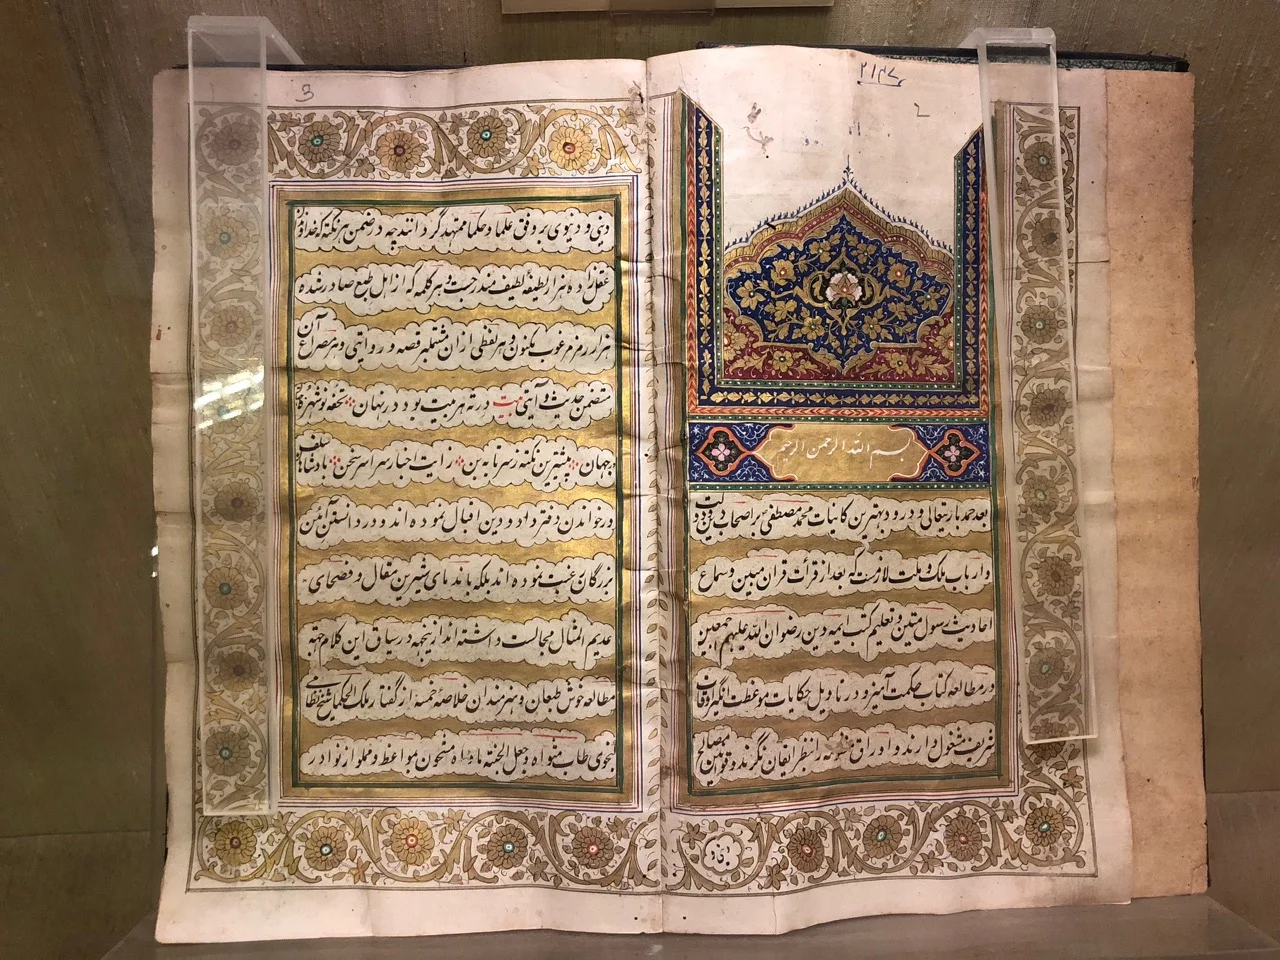 ۲۱۳۷
2
بسم الله الرحمن الرحیم
بعد حمد باریتعالی و درود بهترین کاینات محمد مصطفی بر اصحاب دین و دولت
و ارباب ملک و ملت لازمست که بعد از قرأت قرآن مبین و سماع
احادیث رسول متین و تعلیم کتب ایمه دین رضوان الله علیهم اجمعین
در مطالعه کتاب حکمت آمیز و در تاویل حکایات موعظت انگیز اوقات
شریف مشغول دارند و اوراق را بنظر ایقان نگرند و قوانین مصالح
3
دینی و دنیوی بر وفق علما و حکما ممهد گردانند چه در ضمن هر نکته که خداوندان
عقل زاده هزار لطیفهٔ لطیف مندرجست و هر کلمه که از اهل طبع صادر شده
هزار رمز مرغوب مکنون و هر لفظی از آن مشتمل بر قصه و روایتی و هر مصراع آن
متضمن حدیث و آیتی بیت در ته هر بیت بود در نهان تحفهٔ نو شهرهٔ
به جهان بیشترین نکته ز سر تا به بن رایت اخبار سراسر سخن پادشاهان سلف
در خواندن دفتر داد و دین اقبال نموده اند و در دانستن آئین
بزرگان رغبت نموده اند بلکه با ندمای شیرین مقال و فصحای
عدیم المثال مجالست داشته اند از اینجهة در سیاق این کلام جهة
مطالعه خوش طبعان و هنرمندان خلاصهٔ خمسه از گفتار ملک الحکما شیخ نظامی
گنجوی طاب مثواه و جعل الجنة مأواه مشحون بمواعظ و مملو از نوادر